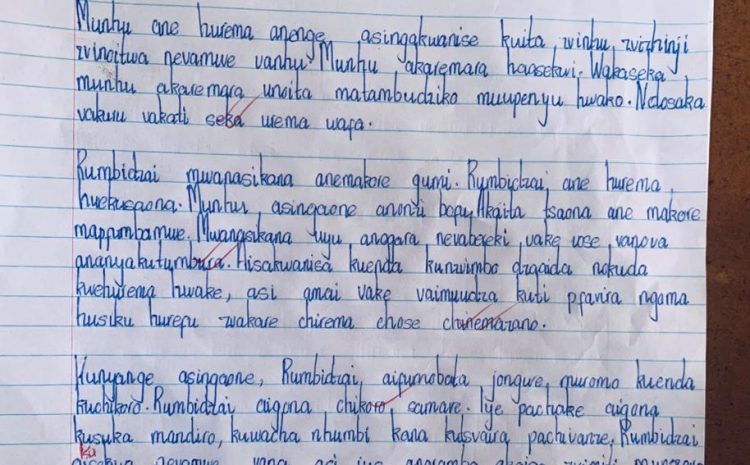 Munhu ane hurema anenge asingakwanise kuita zvinhu zvizhinji
zvinoitwa nevamwe vanhu. Munhu akaremara haasekwi. Wakaseka
munhu akaremara unoita matambudziko muupenyu hwako. Ndosaka
vakuru vakati seka urema wafa.
Rumbidzai mwanasikana anemakore gumi. Rumbidzai ane hurema
hwekusaona. Munhu asingaone anonzi bofu. Akaita tsaona ane makore
mapfumbamwe. Mwanasikana uyu anogara nevabereki vake vose vanova
Haisakwanisa kuenda kunzvimbo dzaaida nokuda
kwehurema hwake, asi amai vake vaimuudza kuti
husiku hurefu zvakare chirema chose chinemazano.
Kunyange asingaone, Rumbidzai aifumobata jongwe muromo kuenda
kuchikoro. Rumbidzai aigona chikoro samare. Iye pachake aigona
kusuka mandiro, kuwacha nhumbi kana kutsvaira pachivanze, Rumbidzai
ka